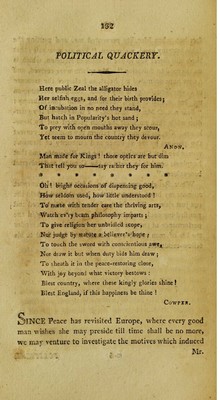 192
POLITICAL QUACKERY.
Here public Zeal the alligator hides
Her selfish eggs, and for their birth provides;
Of incubation in no need they stand,
But hatch in Popularity's hot sand;
To prey with open mouths away they scour,
Yet seem to mourn the country they devour.
ANON.
Man made for Kings! those optics are but dim
That tell you so——say rather they for him.
* * * * * *
Oh! bright occasions of dispensing good,
How seldom used, how little understood!
To nurse with tender care the thriving arts,
Watch ev'ry beam philosophy imparts;
To give religion her unbridled scope,
Nor judge by statute a believer's hope;
To touch the sword with conscientious awe,
Nor draw it but when duty bids him draw;
To sheath it in the peace-restoring close,
With joy beyond what victory bestows:
Blest country, where these kingly glories shine!
Blest England, if this happiness be thine!
COWPER.
SINCE Peace has revisited Europe, where every good
man wishes she may preside till time shall be no more,
we may venture to investigate the motives which induced
Mr.